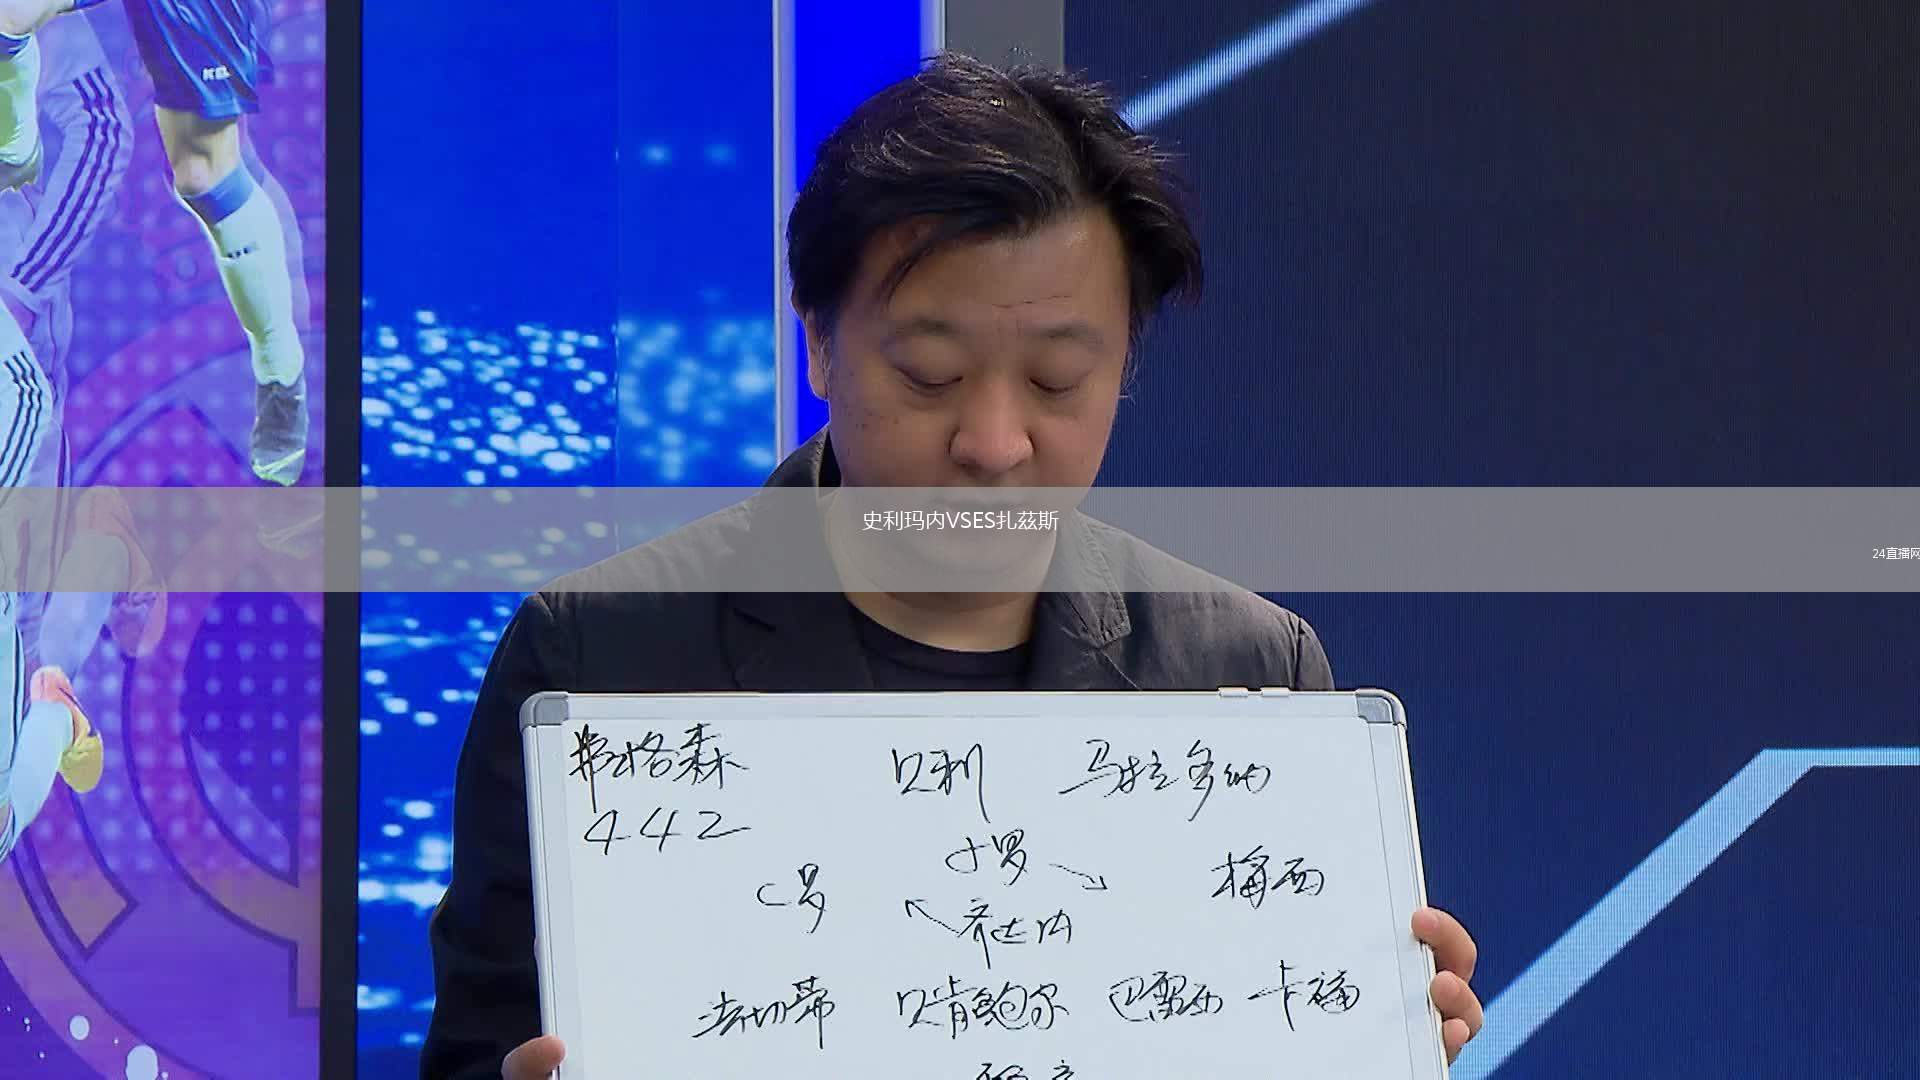 史利玛内VSES扎兹斯
24直播网
弗格森 贝利 马拉多纳
442
小罗
C罗 梅西
齐达内
法切蒂 贝肯鲍尔 巴雷西 卡福